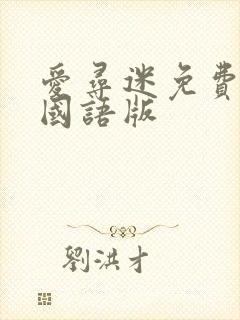 愛尋迷免費
國語版
劉洪才